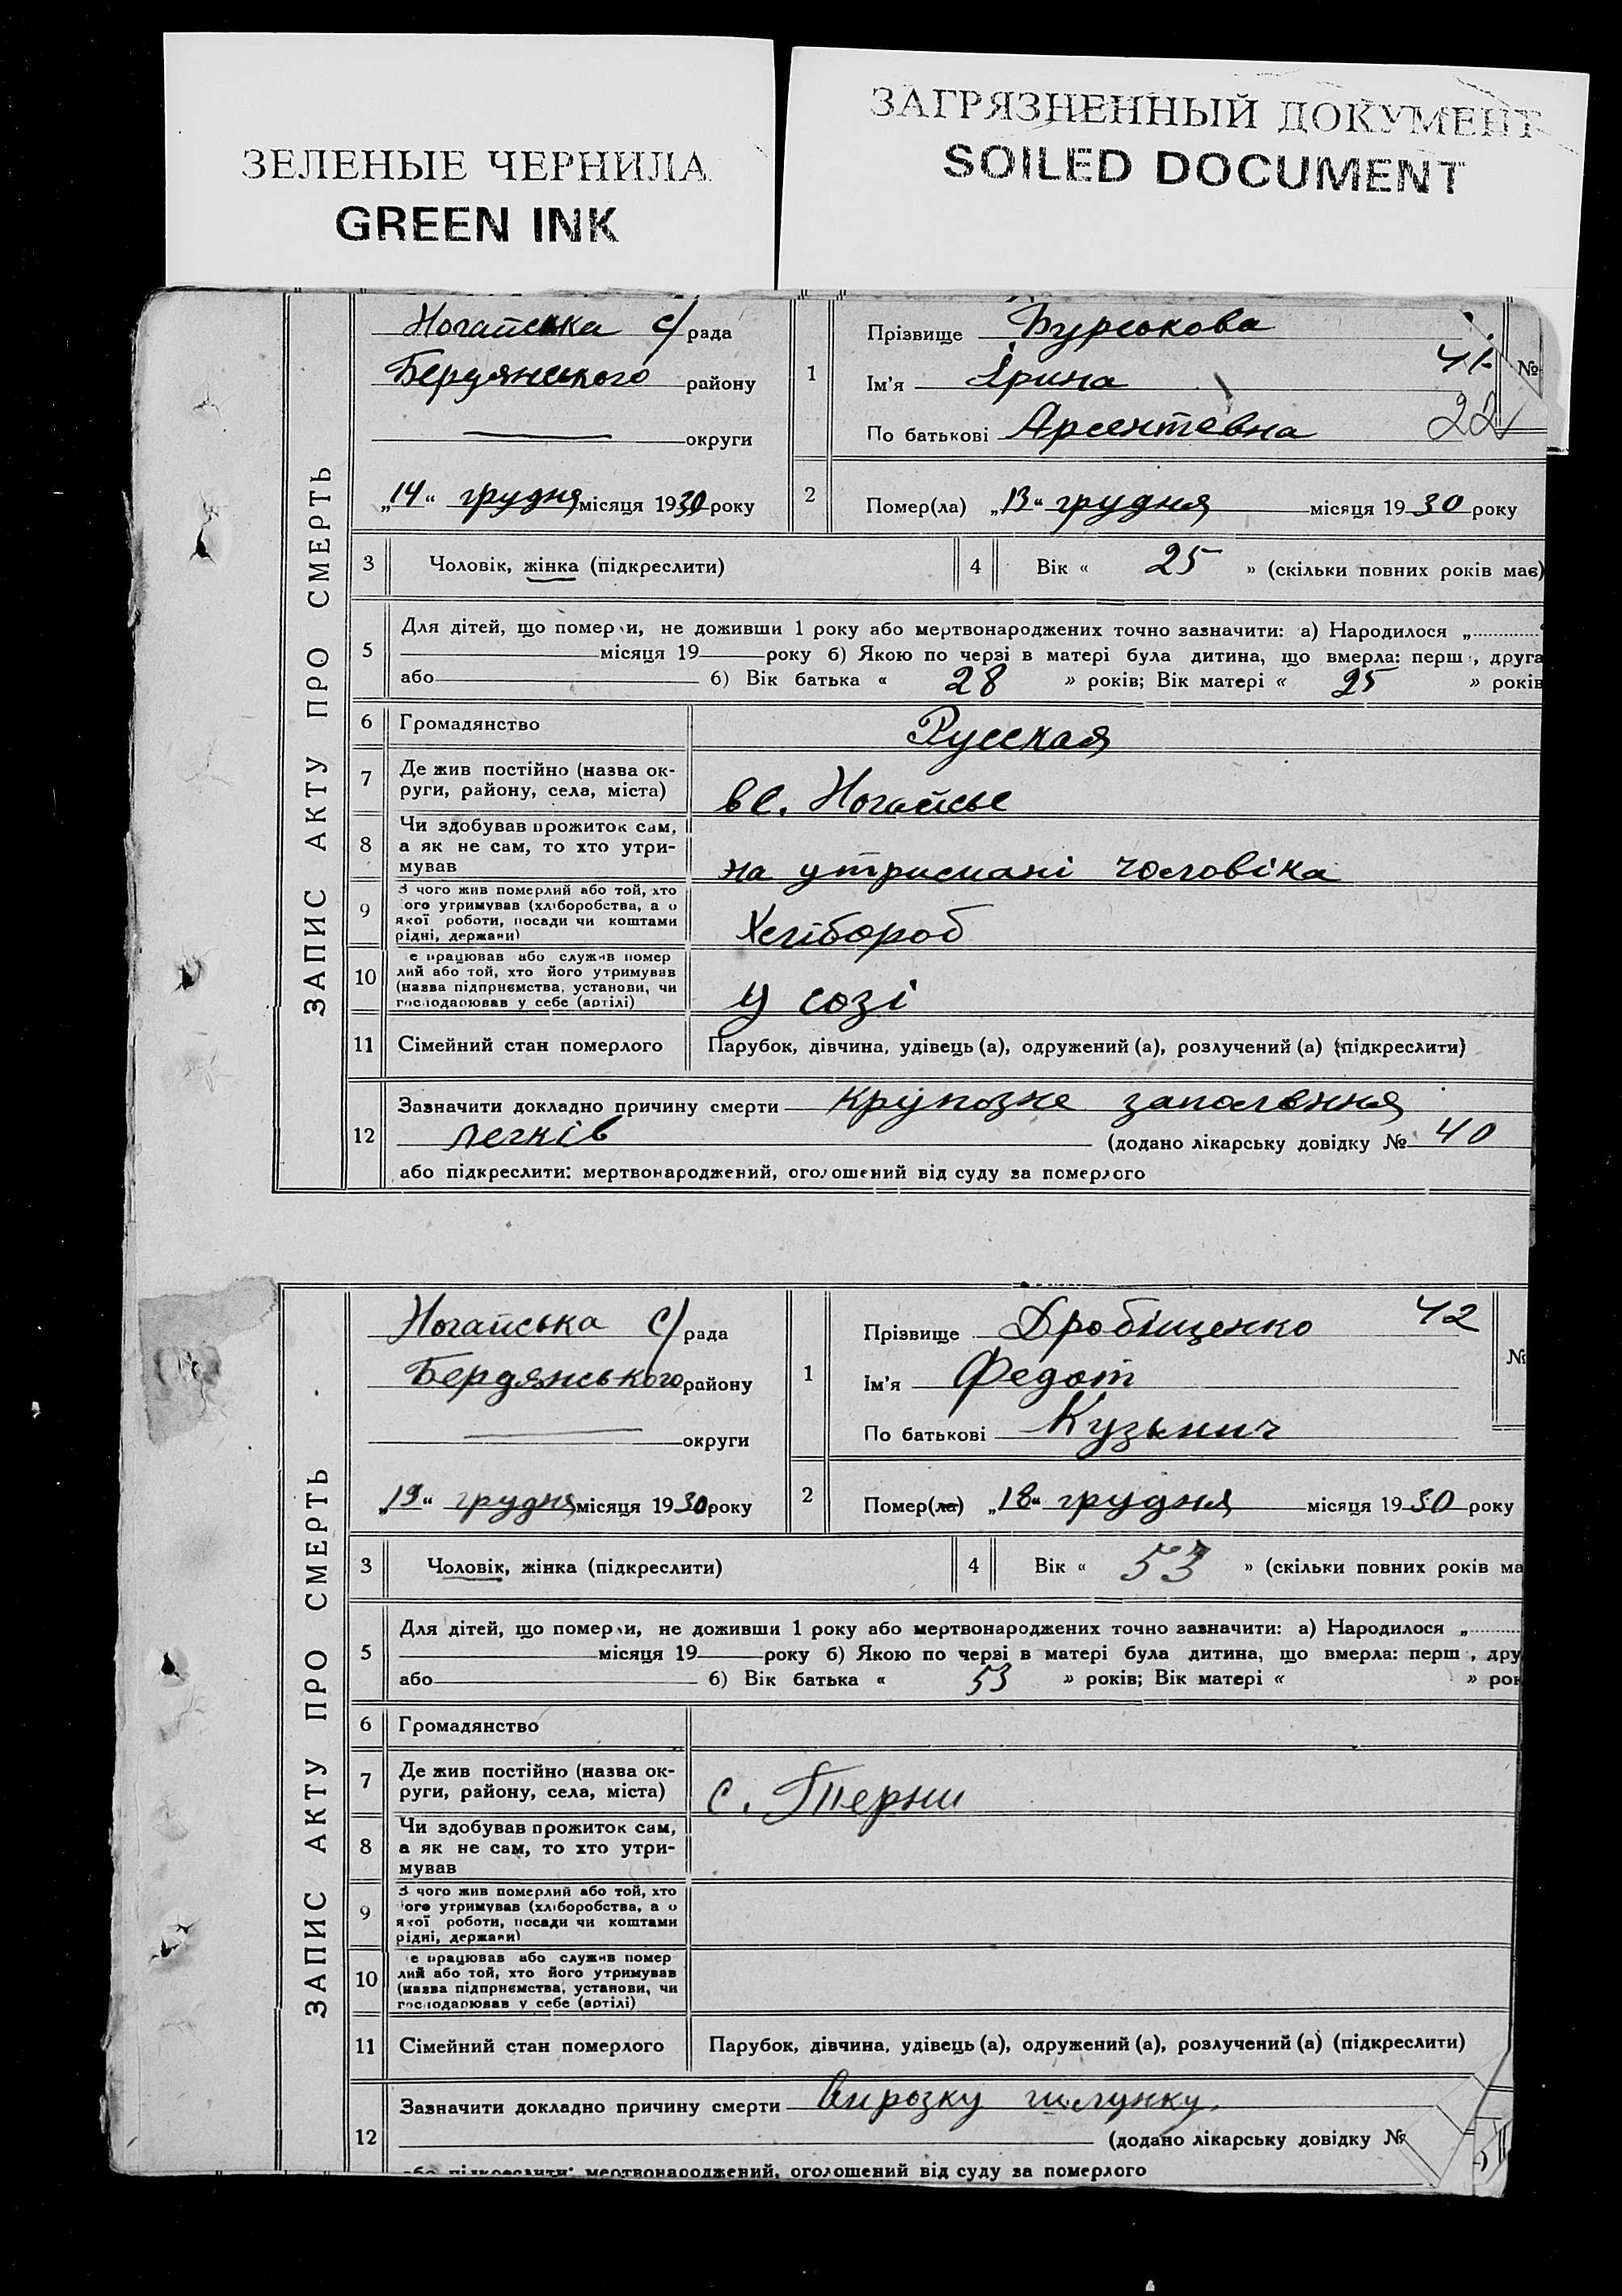 ЗЕЛЕНЫЕ ЧЕРНИЛА
GREEN INK
ЗАГРЯЗНЕННЫЙ ДОКУМЕНТ
SOILED DOCUMENT
ЗАПИС АКТУ ПРО СМЕРТЬ
Ногайська с/рада
Бердянського району
округи
„14“ грудня місяця 1930 року
1
Прізвище Бурсокова
Ім'я Ірина 41 №
По батькові Арсентевна 22
2 Помер(ла) „13“ грудня місяця 1930 року
3 Чоловік, жінка (підкреслити) 4 Вік « 25 » (скільки повних років має)
5 Для дітей, що померли, не доживши 1 року або мертвонароджених точно зазначити: а) Народилося „
місяця 19 року б) Якою по черзі в матері була дитина, що вмерла: перш , друга
або б) Вік батька « 28 » років; Вік матері « 25 » років
6 Громадянство Русская
7 Де жив постійно (назва ок-
руги, району, села, міста) в с. Ногайсье
8 Чи здобував прожиток сам,
а як не сам, то хто утри-
мував на утримані чоловіка
9 З чого жив померлий або той, хто
ого утримував (хліборобства, а о
якої роботи, посади чи коштами
рідні, держави) Хлібороб
10 е працював або служив помер
лий або той, хто його утримував
(назва підприємства, установи, чи
господарював у себе (артілі) у созі
11 Сімейний стан померлого Парубок, дівчина, удівець (а), одружений (а), розлучений (а) (підкреслити)
12 Зазначити докладно причину смерти крупозне заполення
легків (додано лікарську довідку № 40
або підкреслити: мертвонароджений, оголошений від суду за померлого
ЗАПИС АКТУ ПРО СМЕРТЬ
Ногайська с/рада
Бердянського району
округи
„19“ грудня місяця 1930 року
1
Прізвище Дробіщенко 42
Ім'я Федот №
По батькові Кузьмич
2 Помер(ла) „18“ грудня місяця 1930 року
3 Чоловік, жінка (підкреслити) 4 Вік « 53 » (скільки повних років ма
5 Для дітей, що померли, не доживши 1 року або мертвонароджених точно зазначити: а) Народилося „
місяця 19 року б) Якою по черзі в матері була дитина, що вмерла: перш , дру
або б) Вік батька « 53 » років; Вік матері « » рок
6 Громадянство
7 Де жив постійно (назва ок-
руги, району, села, міста) с. Терни
8 Чи здобував прожиток сам,
а як не сам, то хто утри-
мував
9 З чого жив померлий або той, хто
ого утримував (хліборобства, а о
якої роботи, посади чи коштами
рідні, держави)
10 е працював або служив помер
лий або той, хто його утримував
(назва підприємства, установи, чи
господарював у себе (артілі)
11 Сімейний стан померлого Парубок, дівчина, удівець (а), одружений (а), розлучений (а) (підкреслити)
12 Зазначити докладно причину смерти Вирозку шлунку.
(додано лікарську довідку №
або підкреслити: мертвонароджений, оголошений від суду за померлого